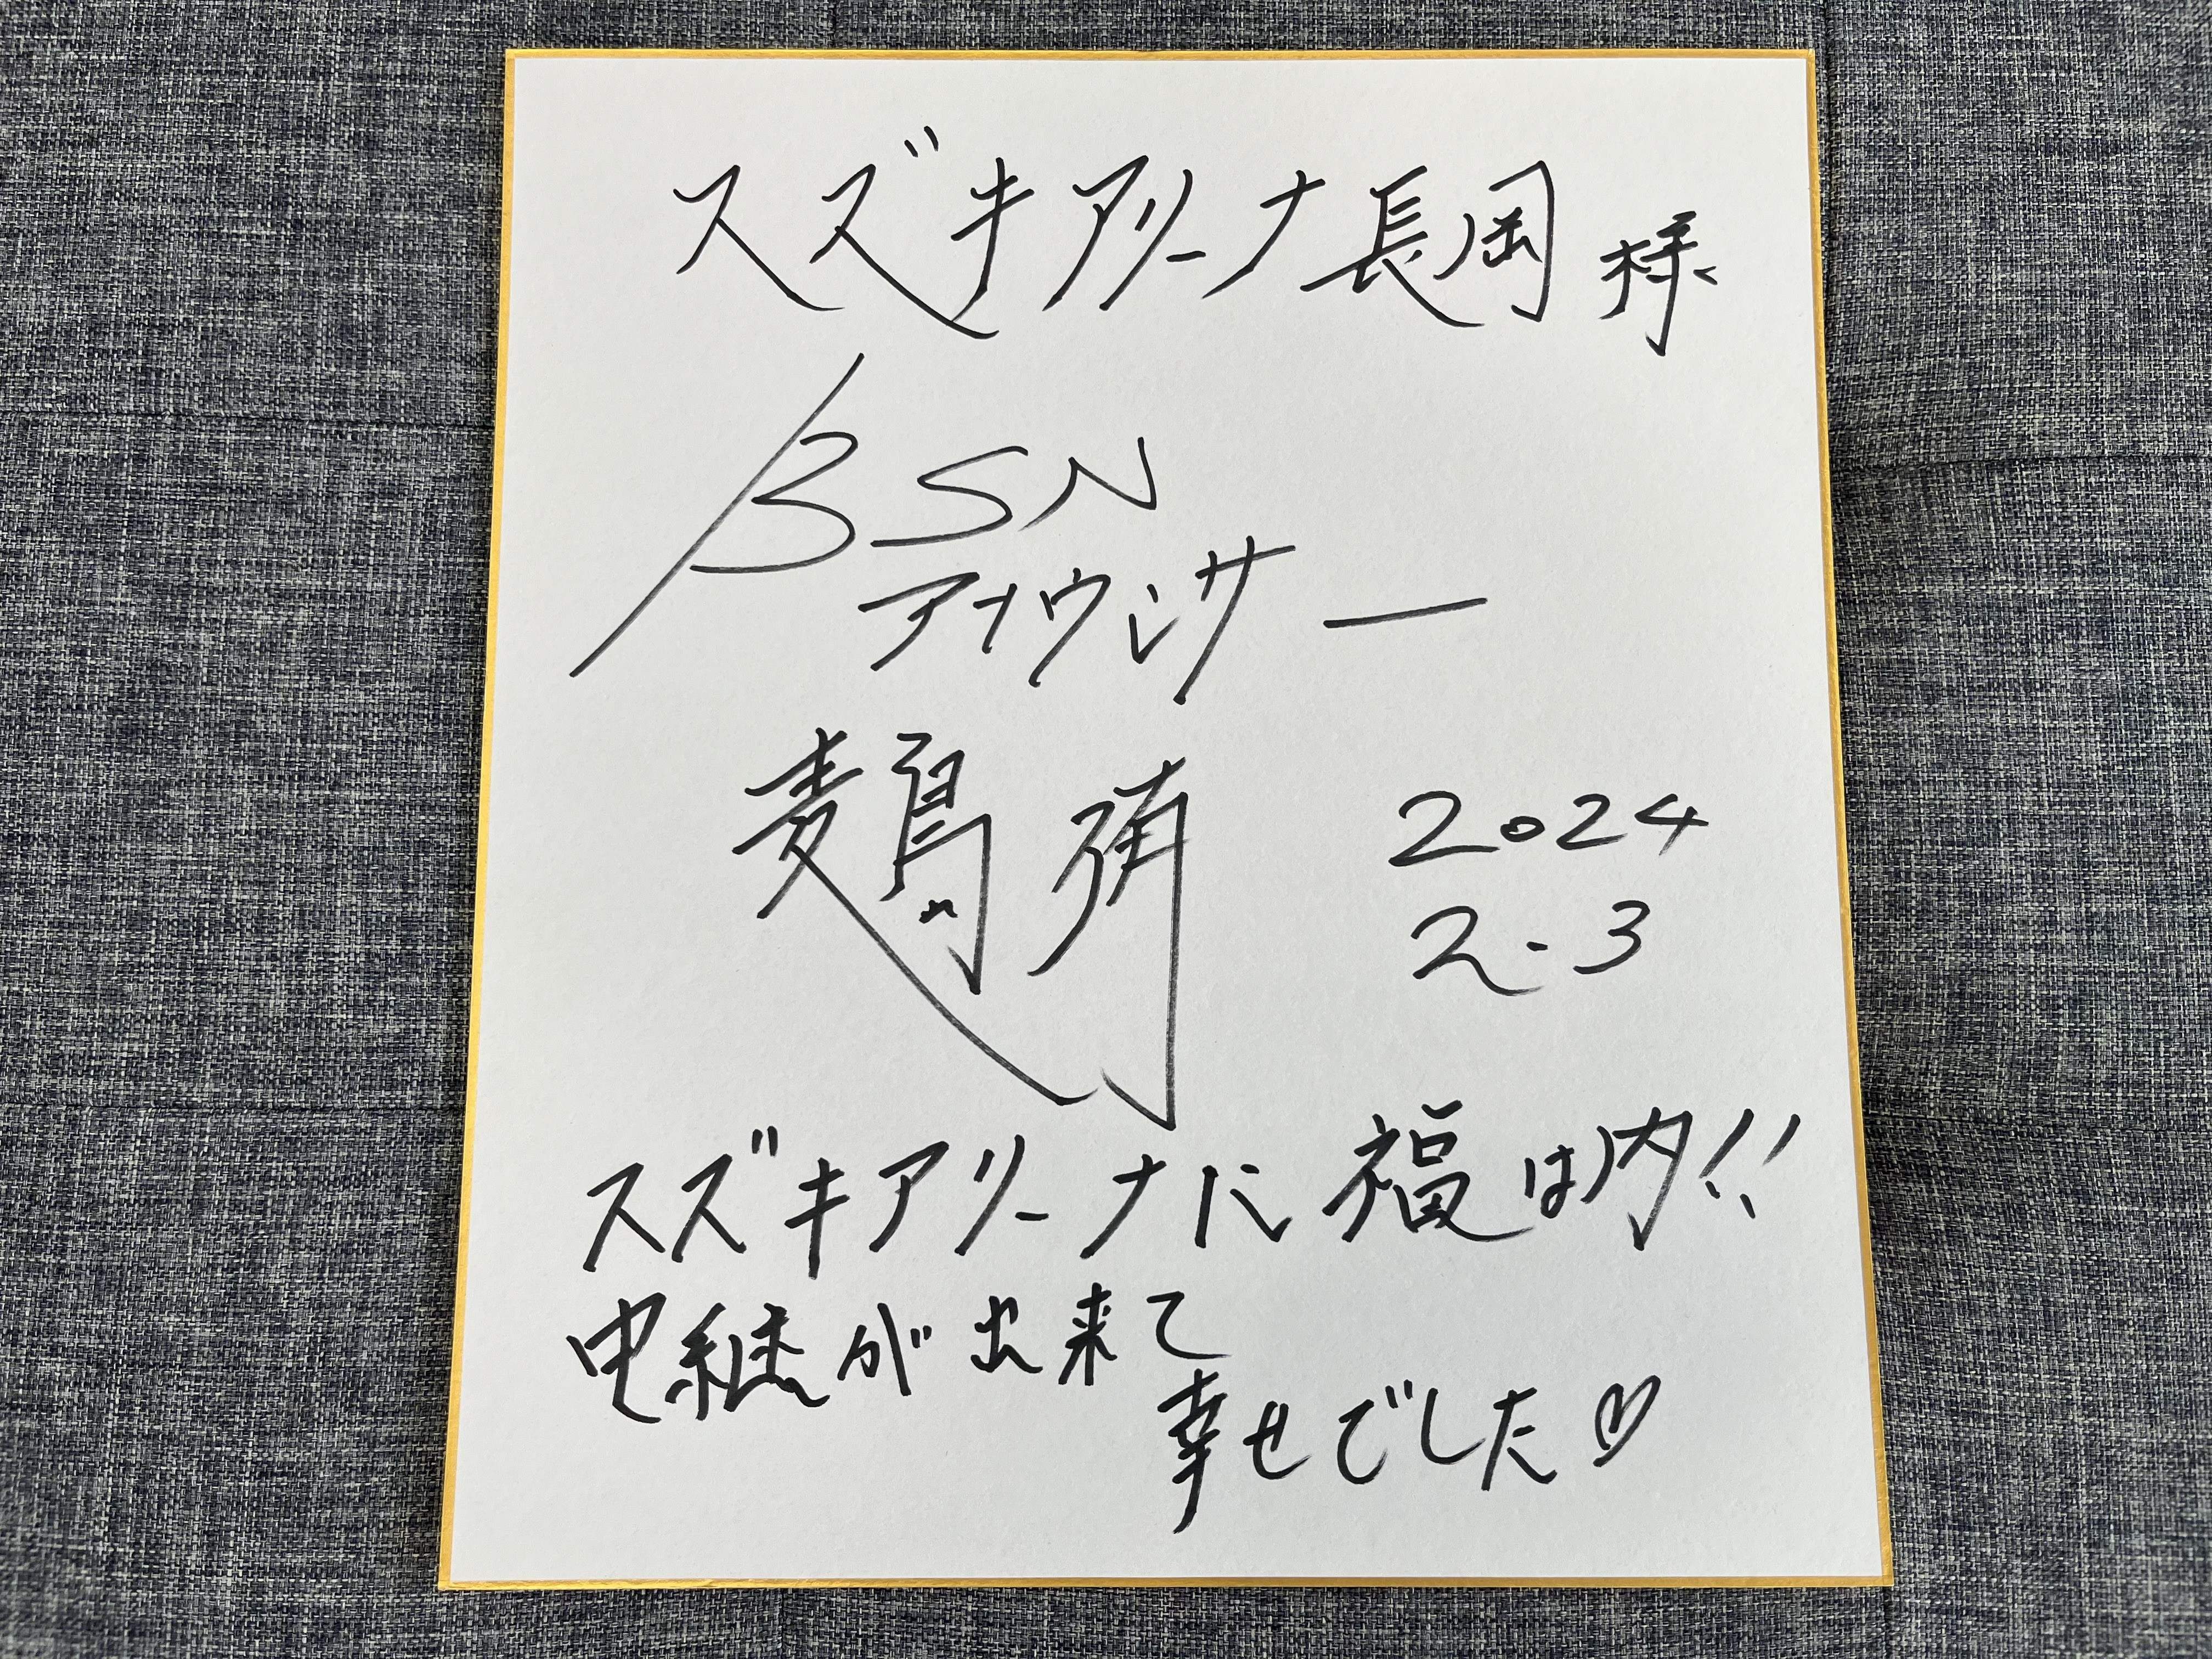 スズキアリーナ長岡様
BSN
アナウンサー
麦島 侑
2024
2.3
スズキアリーナに福は内!!
中継が出来て
幸せでした♡